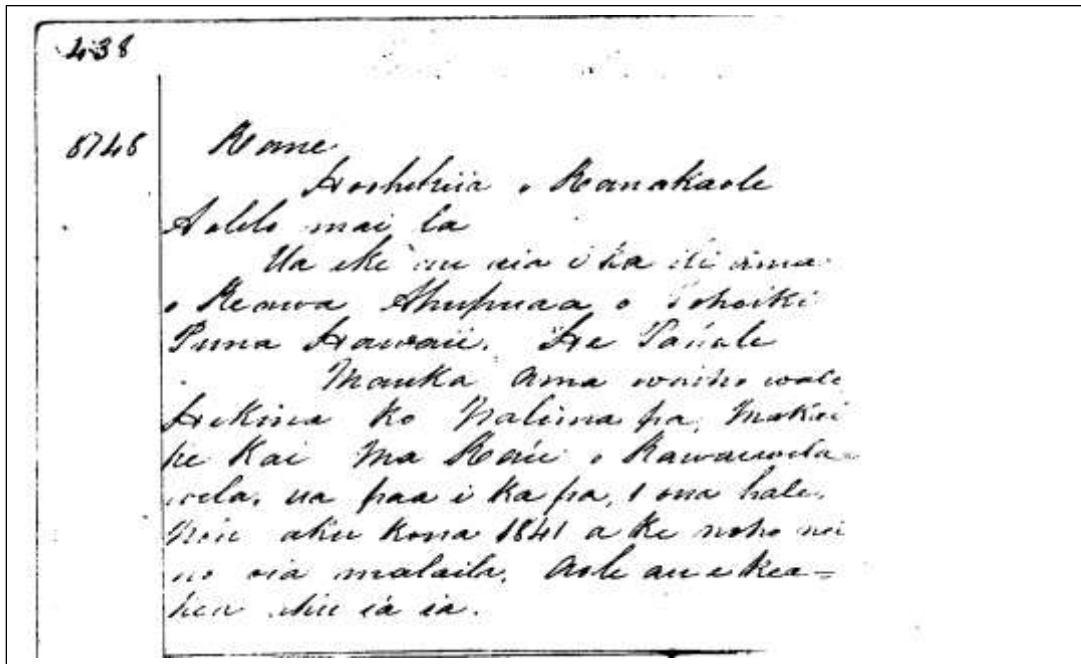 438
8748 Kane
Hoohikiia o Kanakaole
Aolelo mai la
Ua ike au i ka ili aina
o Keawa Ahupuaa o Pohoiki
Puna Hawaii. He Pahale
Mauka Aina waiho wale
Hikina ko Nalima pa, Makai
he Kai Ma Kau o Kawaiwela
wela, ua paa i ka pa, 1 ona hale.
Noiu aku kona 1841 a ke noho nei
no oia malaila. Aole au e kea-
kea aku ia ia.